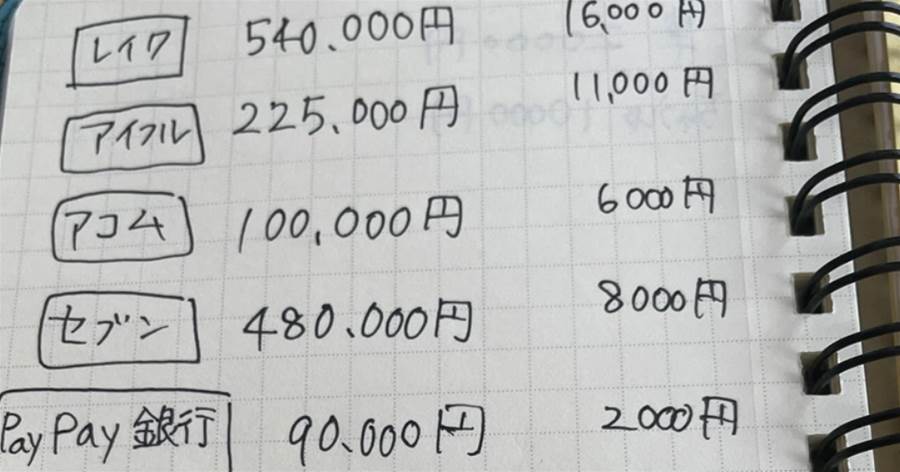 レイク 540.000円 16,000円
アイフル 225.000円 11,000円
アコム 100,000円 6000円
セブン 480.000円 8000円
PayPay 銀行 90.000円 2000円